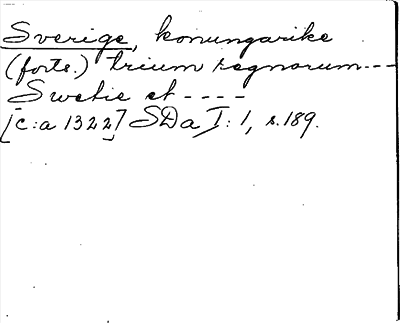 Sverige, konungarike
(forts.) trium regnorum---
Swetie et ----
[c:a 1322] SDa I:1, s.189.